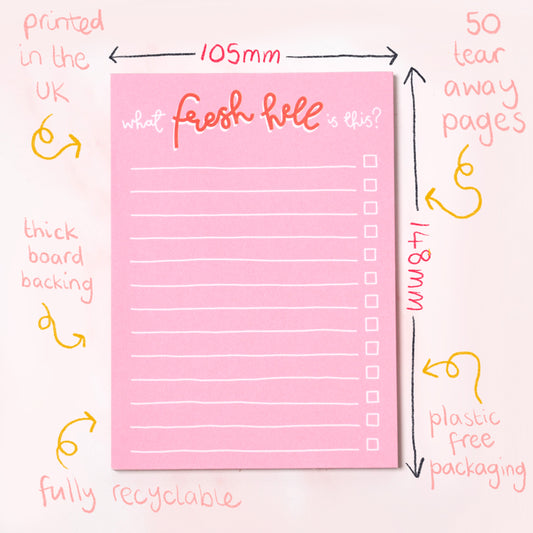 printed
in the
UK
105mm
50
tear
away
pages
what fresh hell is this?
thick
board
backing
148mm
plastic
free
packaging
fully recyclable